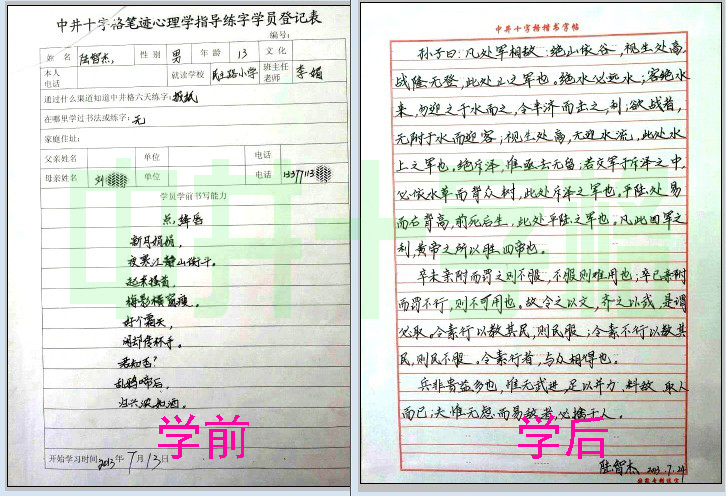 中井十字格笔迹心理学指导练字学员登记表
编号:
姓名 陆智杰 性别 男 年龄 13 文化
本人电话 就读学校 民主路小学 班主任老师 李娟
通过什么渠道知道中井格六天练字: 报纸
在哪里学过书法或练字: 无
家庭住址:
父亲姓名 单位 电话
母亲姓名 刘 单位 电话 13377113
学员学前书写能力
点绛唇
新月娟娟,
夜寒江静山衔斗。
起来搔首,
梅影横窗瘦。
好个霜天,
闲却传杯手。
君知否?
乱鸦啼后,
归兴浓如酒。
学前
开始学习时间 2013年7月13日
中井十字格楷书字帖
孙子曰:凡处军相敌:绝山依谷,视生处高,
战隆无登,此处山之军也。绝水必远水;客绝水
来,勿迎之于水内,令半济而击之,利;欲战者,
无附于水而迎客;视生处高,无迎水流,此处水
上之军也。绝斥泽,惟亟去无留;若交军于斥泽之中,
必依水草而背众树,此处斥泽之军也。平陆处易
而右背高,前死后生,此处平陆之军也。凡此四军之
利,黄帝之所以胜四帝也。
卒未亲附而罚之则不服,不服则难用也;卒已亲附
而罚不行,则不可用也。故令之以文,齐之以武,是谓
必取。令素行以教其民,则民服;令素不行以教其
民,则民不服。令素行者,与众相得也。
兵非贵益多也,惟无武进,足以并力、料敌、取人
而已;夫惟无虑而易敌者,必擒于人。
学后
陆智杰 2013.7.24